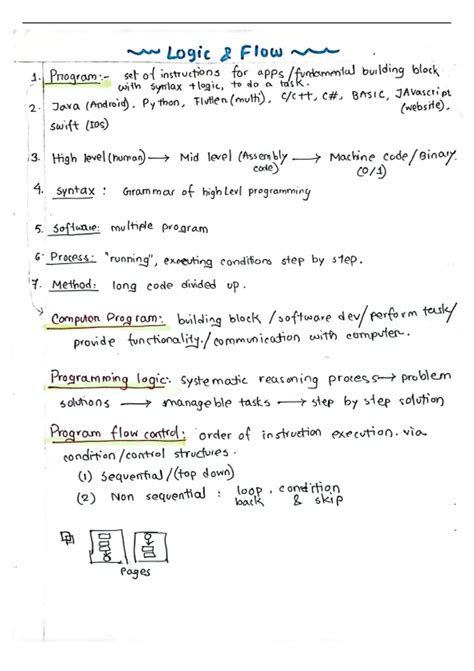 Logic & Flow
1. Program:- set of instructions for apps/fundamental building block
with syntax +logic, to do a task.
2. Java (Android), Python, Flutter(multi), C/C++, C#, BASIC, JAvascript
(website),
swift (IOS)
3. High level(human) → Mid level (Assembly code) → Machine code/Binary.
(0/1)
4. Syntax : Grammar of high levl programming
5. Software: multiple program
6. Process: "running", executing conditions step by step.
7. Method: long code divided up.
Computer Program: building block /software dev/perform task/
provide functionality./communication with computer.
Programming logic: systematic reasoning process → problem
solutions → manageble tasks → step by step solution
Program flow control: order of instruction execution. via
condition/control structures.
(1) Sequential/(top down)
(2) Non sequential : loop back, condition & skip
Pages